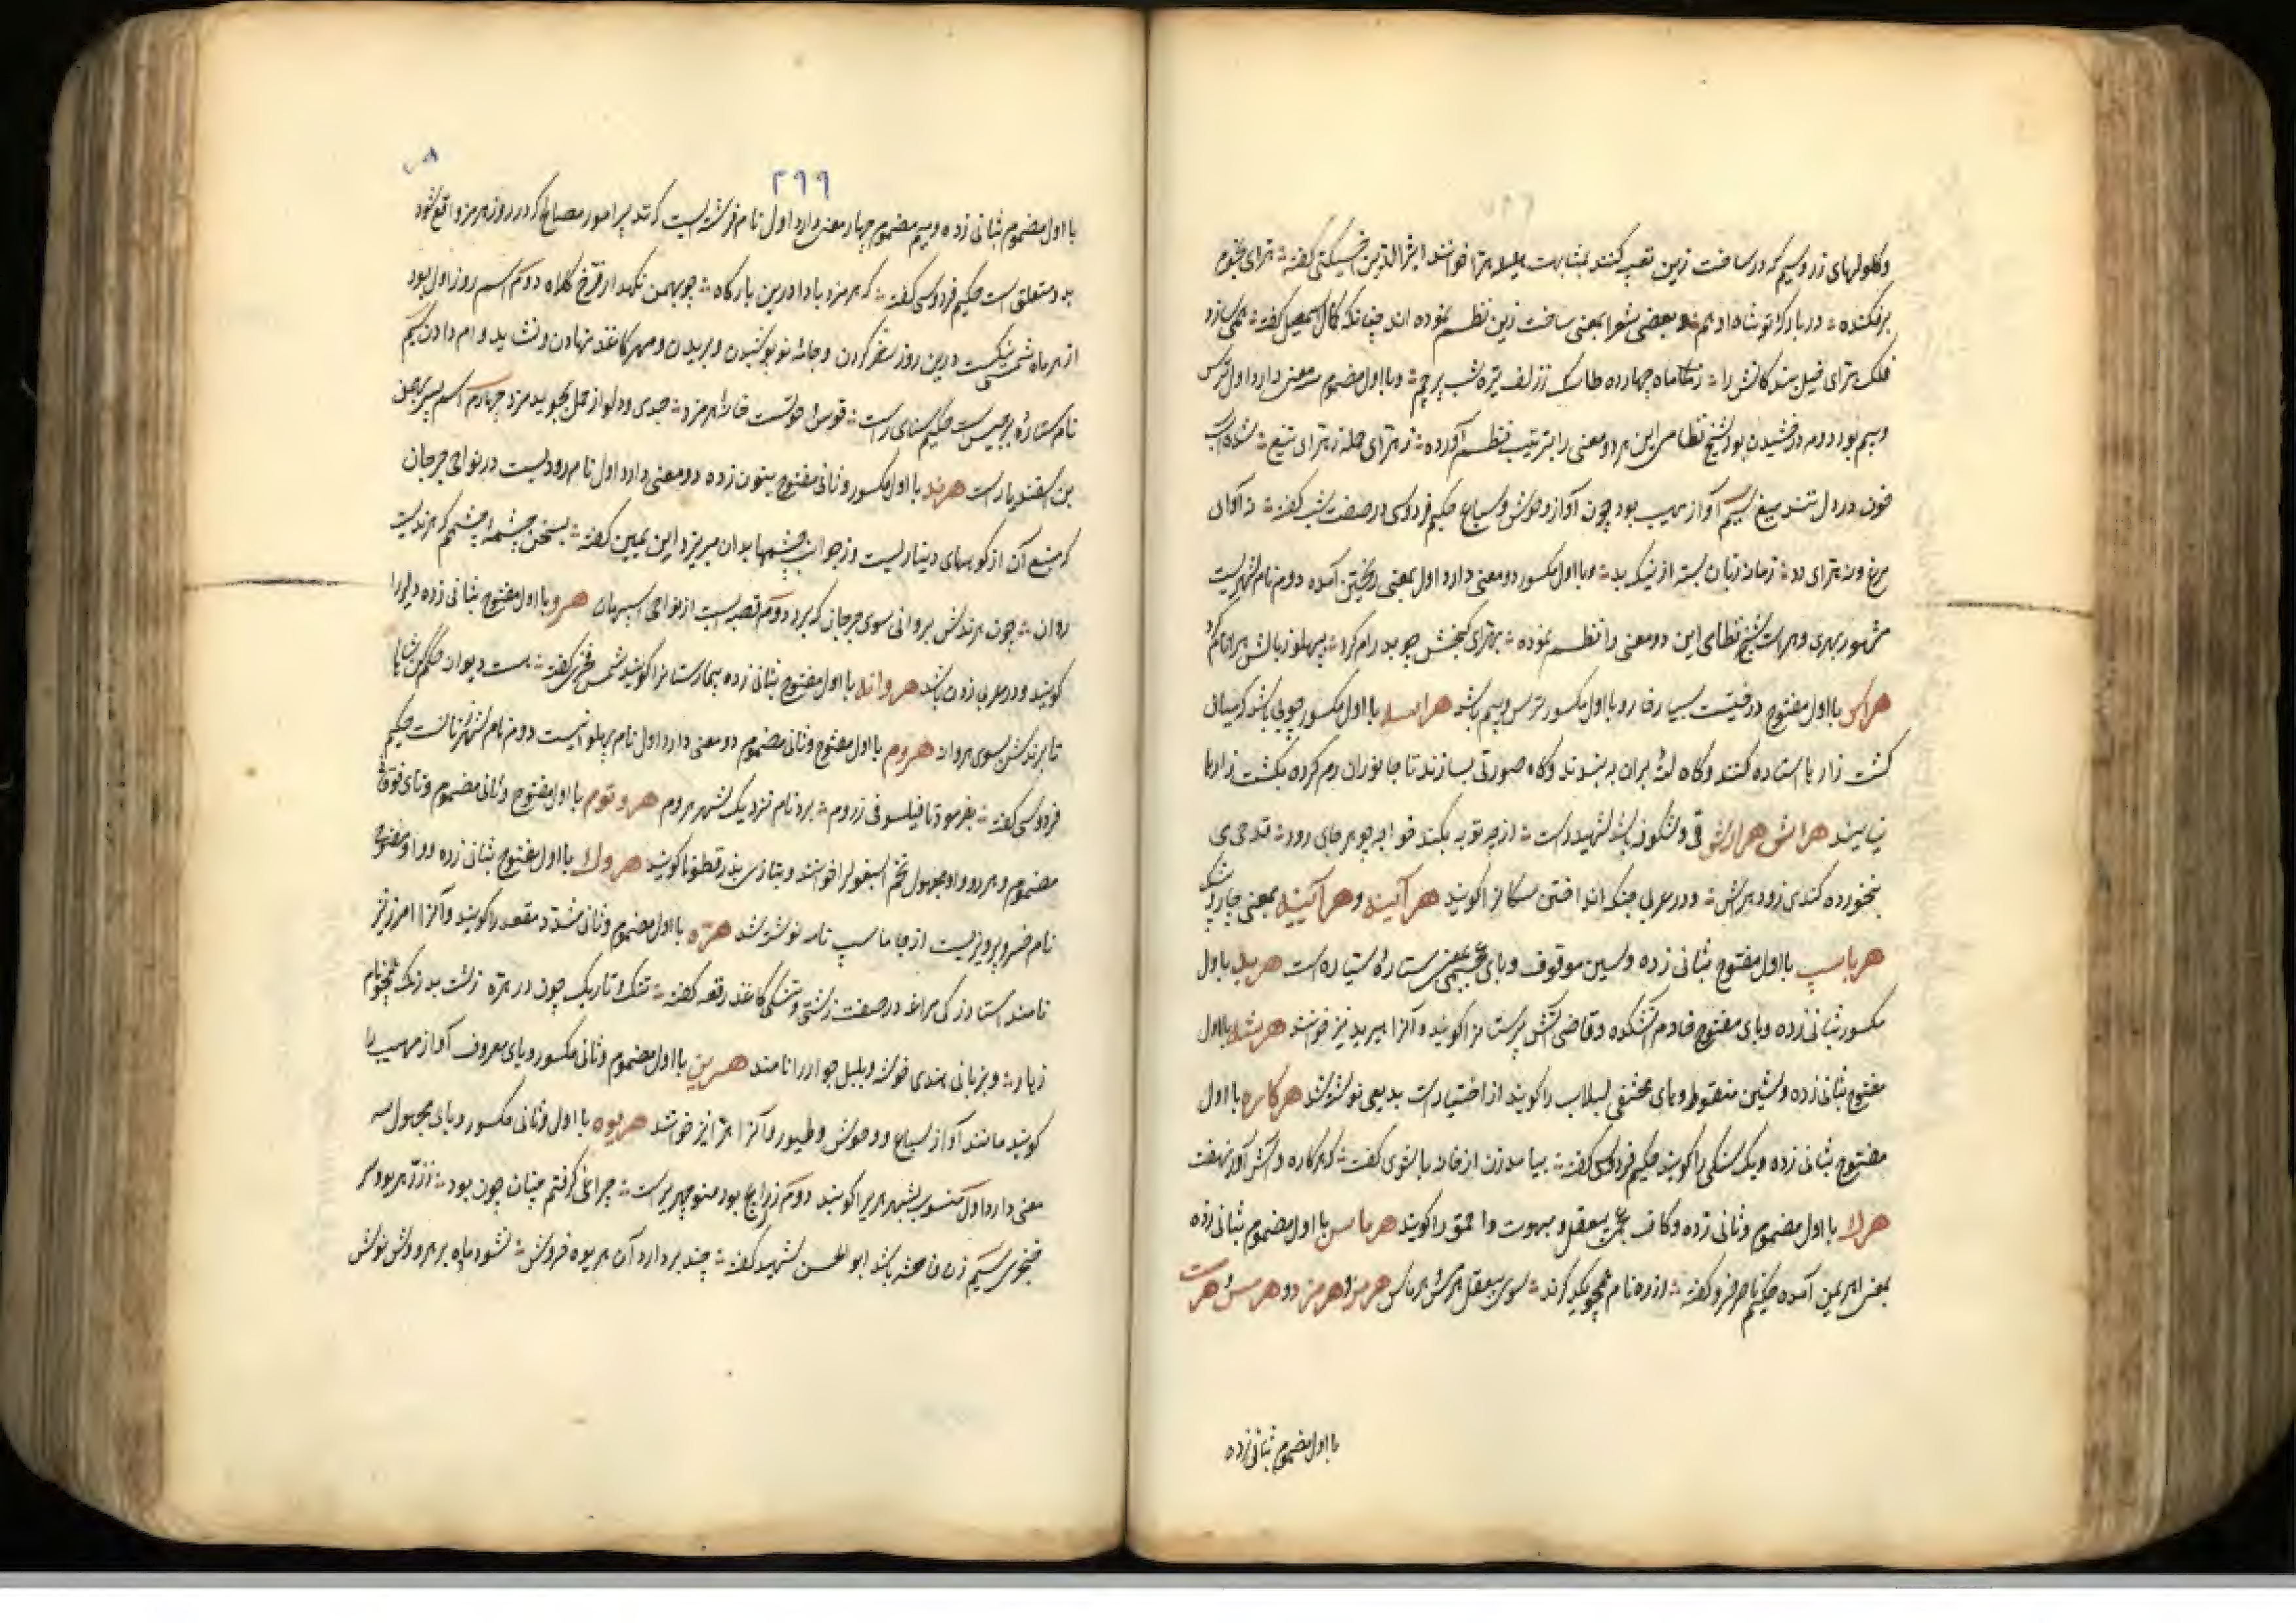 وکلولهای زر و سیم که در ساخت زین تعبیه کنند بمشابهت هلیله هرا خوانند اثیرالدین اخسیکتی گفته هرای نجوم
برفکنده در بارگه تو شاه ادهم و بعضی شعرا بمعنی ساخت زین نظم نموده اند چنانکه کمال اسمعیل گفته همی سازد
فلک هرای خیل بندکانش را ز ماه چهارده طاسک ز زلف تیره شب پرچم و با اول مضموم سه معنی دارد اول ترس
و بیم بود دوم درخشیدن بود شیخ نظامی این هر دو معنی را بترتیب نظم آورده ز هرای حمله ز هرای تیغ شده آب
خون در دل تند میغ سیم آواز مهیب بود چون آواز وحوش و سباع حکیم فردوسی در صفت شب گفته نه آوای
مرغ و نه هرای دد زمانه زبان بسته از نیک بد و با اول مکسور دو معنی دارد اول بمعنی ریختن آمده دوم نام شهریست
مشهور بهری و هرات شیخ نظامی این دو معنی را نظم نموده
با اول مفتوح درختیست بسیار خار و با اول مکسور ترس و بیم باشد هراسه با اول مکسور چوبی باشد که میان
کشت زار با استاده کنند و گاه لته بران به بندند و گاه صورتی بسازند تا جانوران رم کرده بکشت زارها
نیایند هراش هراوش قی و شکوفه باشد شهید راست از چه توبه نکند خواجه چو هر جای رود قدحی می
بخورده کندی زود هراش و در عربی جنک انداختن سکانرا گویند هر آئینه و هر آیینه بمعنی ناچار باشد
هرباسپ با اول مفتوح بثانی زده و سین موقوف و بای عجمی بمعنی ستاره سیاره است هربد با اول
مکسور بثانی زده و بای مفتوح خادم آتشکده و قاضی آتش پرستانرا گویند و آنرا هیربد نیز خوانند هرشه با اول
مفتوح بثانی زده و شین منقوط و های مختفی لبلاب را گویند از اختیارات بدیعی نوشته شد هرکاره با اول
مفتوح بثانی زده دیک سنکی را گویند حکیم فردوسی گفته بیامد زن از خانه با شوی گفت که هرکاره و آتش آور نهفت
هرک با اول مضموم و ثانی زده و کاف عجمی بیعقل و مبهوت و احمق را گویند هرماس با اول مضموم بثانی زده
بمعنی اهریمن آمده حکیم ناصر خسرو گفته
با اول مضموم بثانی زده
۲۹۹
با اول مضموم بثانی زده و میم مضموم چهار معنی دارد اول نام فرشته ایست که تدبیر امور مصالح که در روز هرمز واقع شود
بدو متعلق است حکیم فردوسی گفته که هرمزد بادا درین بارگاه چو بهمن نکهدار فرخ کلاه دوم اسم روز اول بود
از هر ماه شمسی نیکست درین روز سفر کردن و جامه نو پوشیدن و بریدن و مهر کاغذ نهادن و نشاید وام دادن سیم
نام ستاره برجیس است حکیم سنائی راست قوس و حوتست خانه هرمزد جدی و دلو از زحل بجوید مزد چهارم اسم پسر بهمن
بن اسفندیار است هرند با اول مکسور و ثانی مفتوح بنون زده دو معنی دارد اول نام رودیست در نواحی جرجان
که منبع آن از کوههای دیناریست و از جوانب چشمها بدان میریزد ابن یمین گفته بسخن چشمه چشمم که هرندیست
روان چون هرندش بروانی سوی جرجان که برد دوم قصبه ایست از نواحی اسپهان هرو با اول مفتوح بثانی زده دلیر را
گویند و در عربی زدن باشد هروانه با اول مفتوح بثانی زده بیمارستانرا گویند شمس فخری گفته
تا برندش بسوی هروانه هروم با اول مفتوح و ثانی مضموم دو معنی دارد اول نام پهلوانیست دوم نام شهر زنانست حکیم
فردوسی گفته بفرمود تا فیلسوفی ز روم برد نام نزدیک شهر هروم هروتوم با اول مفتوح و ثانی مضموم و تای فوقانی
مضموم و هر دو واو مجهول تخم اسبغول را خوانند و بتازی بذر قطونا گویند هروک با اول مفتوح بثانی زده و واو مفتوح
نام خسرو پرویزیست از جاماسپ نامه نوشته شد هره با اول مضموم و ثانی مشدد مقعد را گویند و آنرا نیز
نامند استاد زکی مراغه در صفت زشتی و تنکی کاغذ رقعه گفته تنک و تاریک چون دره هره زشت بد رنک همچو نام
زیاد و بزبان هندی خوشه و بلبل جو ار را نامند هرین با اول مضموم و ثانی مکسور و یای معروف آواز مهیب را
گویند مانند آواز سباع و وحوش و طیور و آنرا هرا نیز خوانند هریوه با اول و ثانی مکسور و یای مجهول سه
معنی دارد اول منسوب بشهر هری را گویند دوم زر رایج بود منوچهری راست
خنجوی سیم زن فاحشه باشد ابو الحسن شهید گفته چند بردارد آن هریوه خروش نشود باده بر سرودش نوش